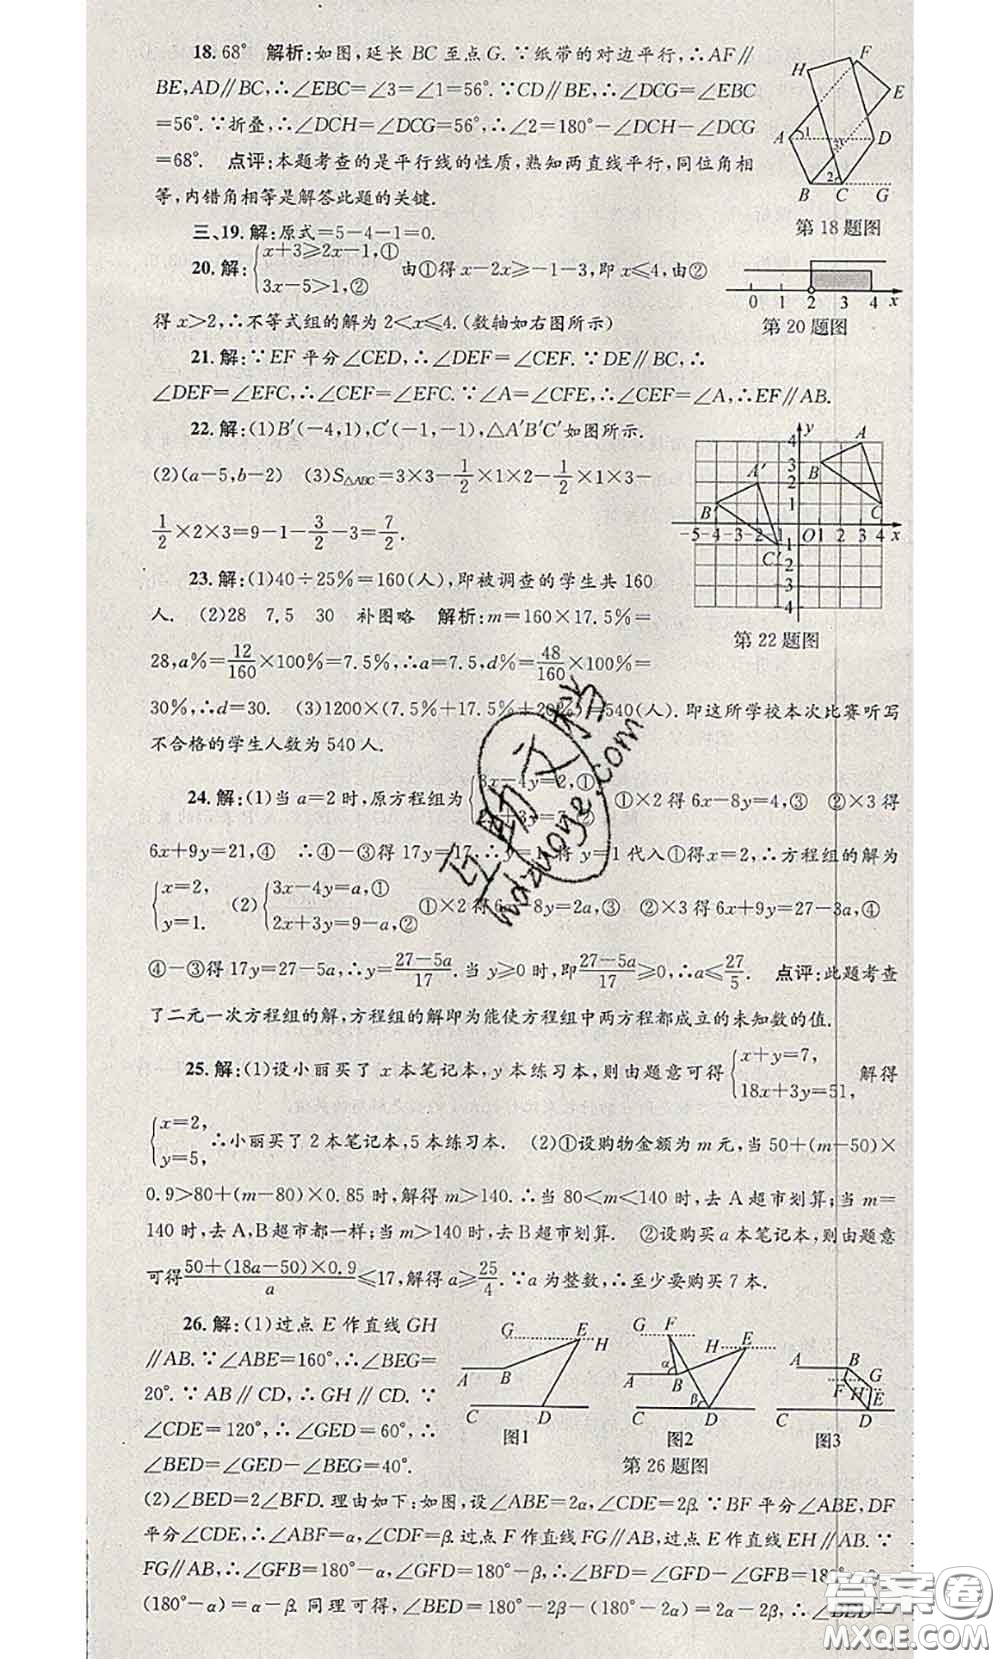 18. 68° 解析:如图,延长 BC 至点 G. ∵纸带的对边平行,∴AF∥
BE,AD∥BC,∴∠EBC=∠3=∠1=56°. ∵CD∥BE,∴∠DCG=∠EBC
=56°. ∵折叠,∴∠DCH=∠DCG=56°,∴∠2=180°−∠DCH−∠DCG
=68°. 点评:本题考查的是平行线的性质,熟知两直线平行,同位角相
等,内错角相等是解答此题的关键.
H F E A 1 3 D 2 B C G
第 18 题图
三、19. 解:原式=5−4−1=0.
20. 解:{x+3≥2x−1,① 3x−5>1,② 由①得 x−2x≥−1−3,即 x≤4,由②
得 x>2,∴不等式组的解为 2<x≤4. (数轴如右图所示)
0 1 2 3 4 x
第 20 题图
21. 解:∵EF 平分∠CED,∴∠DEF=∠CEF. ∵DE∥BC,∴
∠DEF=∠EFC,∴∠CEF=∠EFC. ∵∠A=∠CFE,∴∠CEF=∠A,∴EF∥AB.
22. 解:(1)B′(−4,1),C′(−1,−1),△A′B′C′如图所示.
(2)(a−5,b−2) (3)S△ABC=3×3−1/2×1×2−1/2×1×3−
1/2×2×3=9−1−3/2−3=7/2.
第 22 题图
23. 解:(1)40÷25%=160(人),即被调查的学生共 160
人. (2)28 7.5 30 补图略 解析:m=160×17.5%=
28,a%=12/160×100%=7.5%,∴a=7.5,d%=48/160×100%=
30%,∴d=30. (3)1200×(7.5%+17.5%+20%)=540(人). 即这所学校本次比赛听写
不合格的学生人数为 540 人.
24. 解:(1)当 a=2 时,原方程组为{3x−4y=2,① 2x+3y=7,② ①×2 得 6x−8y=4,③ ②×3 得
6x+9y=21,④ ∴④−③得 17y=17,∴y=1,将 y=1 代入①得 x=2,∴方程组的解为
{x=2, y=1. (2){3x−4y=a,① 2x+3y=9−a,② ①×2 得 6x−8y=2a,③ ②×3 得 6x+9y=27−3a,④
④−③得 17y=27−5a,∴y=27−5a/17. 当 y≥0 时,即27−5a/17≥0,∴a≤27/5. 点评:此题考查
了二元一次方程组的解,方程组的解即为能使方程组中两方程都成立的未知数的值.
25. 解:(1)设小丽买了 x 本笔记本,y 本练习本,则由题意可得{x+y=7, 18x+3y=51, 解得
{x=2, y=5, ∴小丽买了 2 本笔记本,5 本练习本. (2)①设购物金额为 m 元,当 50+(m−50)×
0.9>80+(m−80)×0.85 时,解得 m>140. ∴当 80<m<140 时,去 A 超市划算;当 m=
140 时,去 A,B 超市都一样;当 m>140 时,去 B 超市划算. ②设购买 a 本笔记本,则由题意
可得50+(18a−50)×0.9/a≤17,解得 a≥25/4. ∵a 为整数,∴至少要购买 7 本.
26. 解:(1)过点 E 作直线 GH
∥AB. ∵∠ABE=160°,∴∠BEG=
20°. ∵AB∥CD,∴GH∥CD. ∵
∠CDE=120°,∴∠GED=60°,∴
∠BED=∠GED−∠BEG=40°.
图1 图2 图3
第 26 题图
(2)∠BED=2∠BFD. 理由如下:如图,设∠ABE=2α,∠CDE=2β. ∵BF 平分∠ABE,DF
平分∠CDE,∴∠ABF=α,∠CDF=β. 过点 F 作直线 FG∥AB,过点 E 作直线 EH∥AB. ∵
FG∥AB,∴∠GFB=180°−α,∠GFD=180°−β,∴∠BFD=∠GFD−∠GFB=180°−β−
(180°−α)=α−β. 同理可得,∠BED=180°−2β−(180°−2α)=2α−2β,∴∠BED=
互助文档
hdzuoye.com
答案圈
MXQE.COM